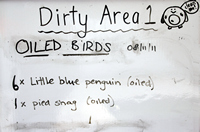 Dirty Area 1
OILED BIRDS
6x Little blue penguin (oiled)
1x pied shag (oiled)
1